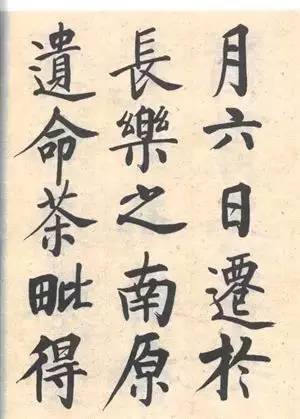 月六日遷於
長樂之南原
遺命茶毗得